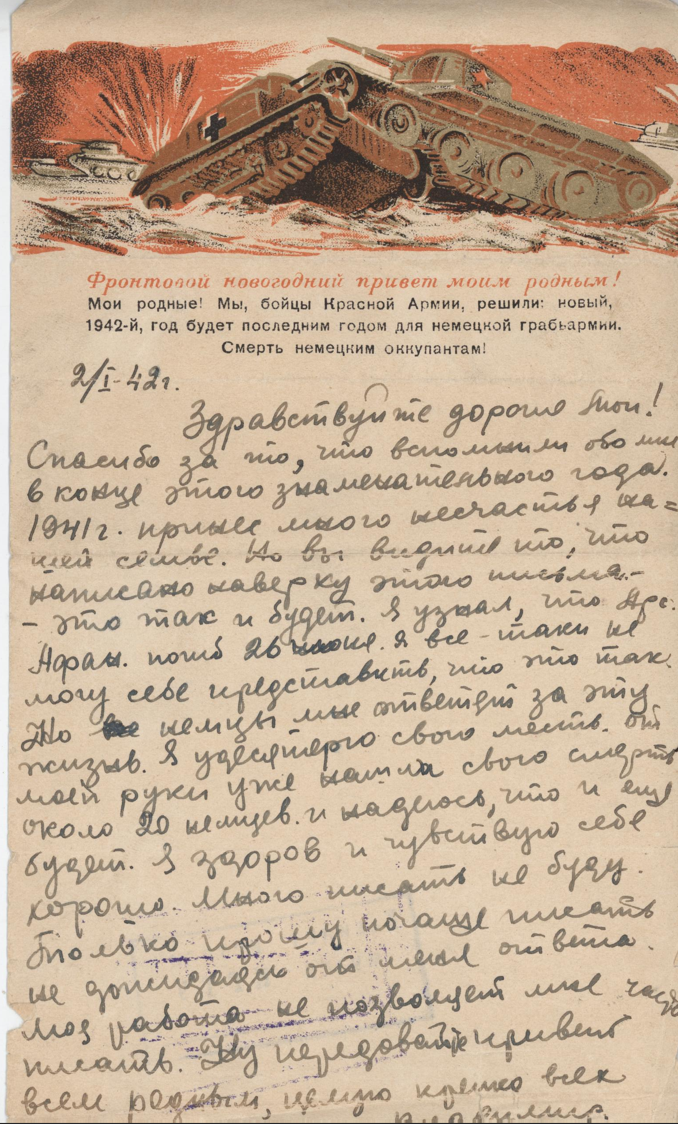 Фронтовой новогодний привет моим родным!
Мои родные! Мы, бойцы Красной Армии, решили: новый,
1942-й, год будет последним годом для немецкой грабьармии.
Смерть немецким оккупантам!
2/I-42г.
Здравствуйте дорогие мои!
Спасибо за то, что вспомнили обо мне
в конце этого знаменательного года.
1941г. принес много несчастья на=
шей семье. Но вы видите то, что
написано наверху этого письма-
- это так и будет. Я узнал, что Арс.
Афан. погиб 26 июня. Я все-таки не
могу себе представить, что это так.
Но немцы мне ответят за эту
жизнь. Я удесятерю свою месть. От
моей руки уже нашли свою смерть
около 20 немцев. и надеюсь, что и еще
будет. Я здоров и чувствую себе
хорошо. Много писать не буду.
Только прошу почаще писать
не дожидаясь от меня ответа.
Моя работа не позволяет мне часто
писать. Ну передовайте привет
всем родным, целую крепко всех
Владимир.